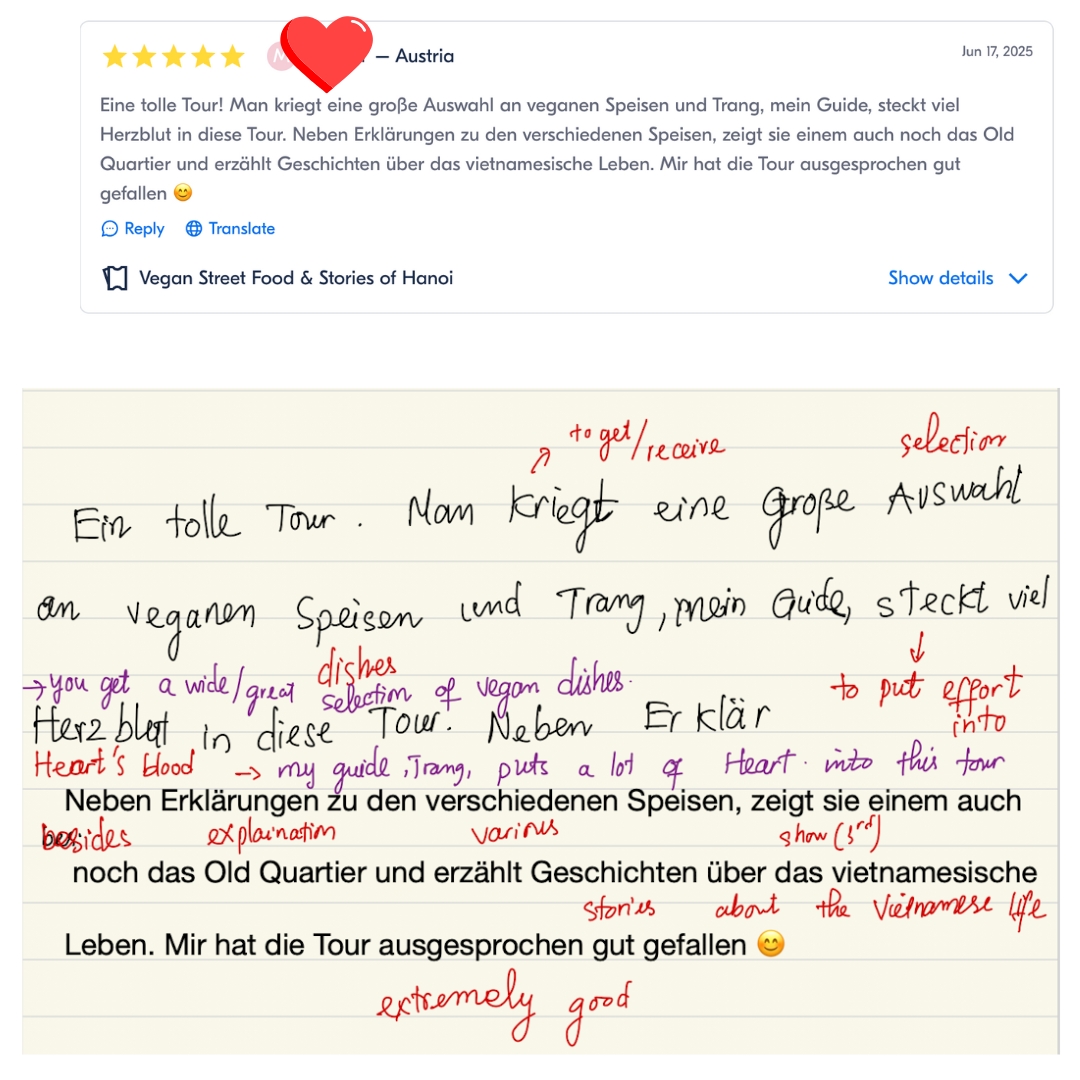 – Austria
Jun 17, 2025
Eine tolle Tour! Man kriegt eine große Auswahl an veganen Speisen und Trang, mein Guide, steckt viel
Herzblut in diese Tour. Neben Erklärungen zu den verschiedenen Speisen, zeigt sie einem auch noch das Old
Quartier und erzählt Geschichten über das vietnamesische Leben. Mir hat die Tour ausgesprochen gut
gefallen 😊
Reply Translate
Vegan Street Food & Stories of Hanoi
Show details
to get/receive selection
Ein tolle Tour. Man kriegt eine große Auswahl
an veganen Speisen und Trang, mein Guide, steckt viel
dishes
→you get a wide/great selection of vegan dishes.
to put effort into
Herzblut in diese Tour. Neben Erklär
Heart's blood → my guide, Trang, puts a lot of Heart into this tour
Neben Erklärungen zu den verschiedenen Speisen, zeigt sie einem auch
besides explaination various show (3rd)
noch das Old Quartier und erzählt Geschichten über das vietnamesische
stories about the Vietnamese life
Leben. Mir hat die Tour ausgesprochen gut gefallen 😊
extremely good